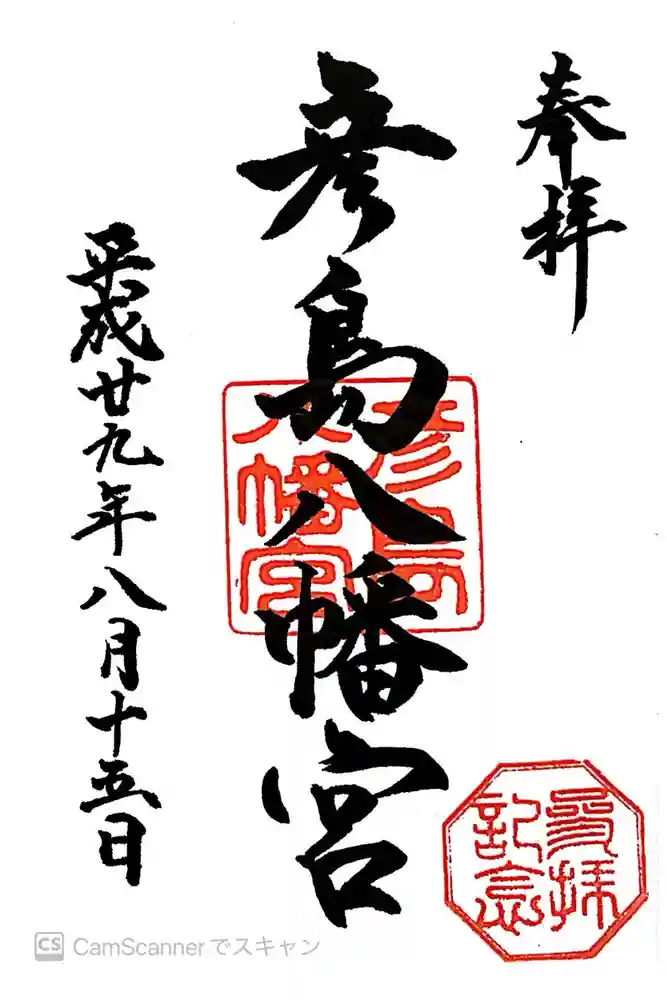 奉拝
彦島八幡宮
彦島
八幡宮
平成廿九年八月十五日
参拝
記念
CS CamScannerでスキャン